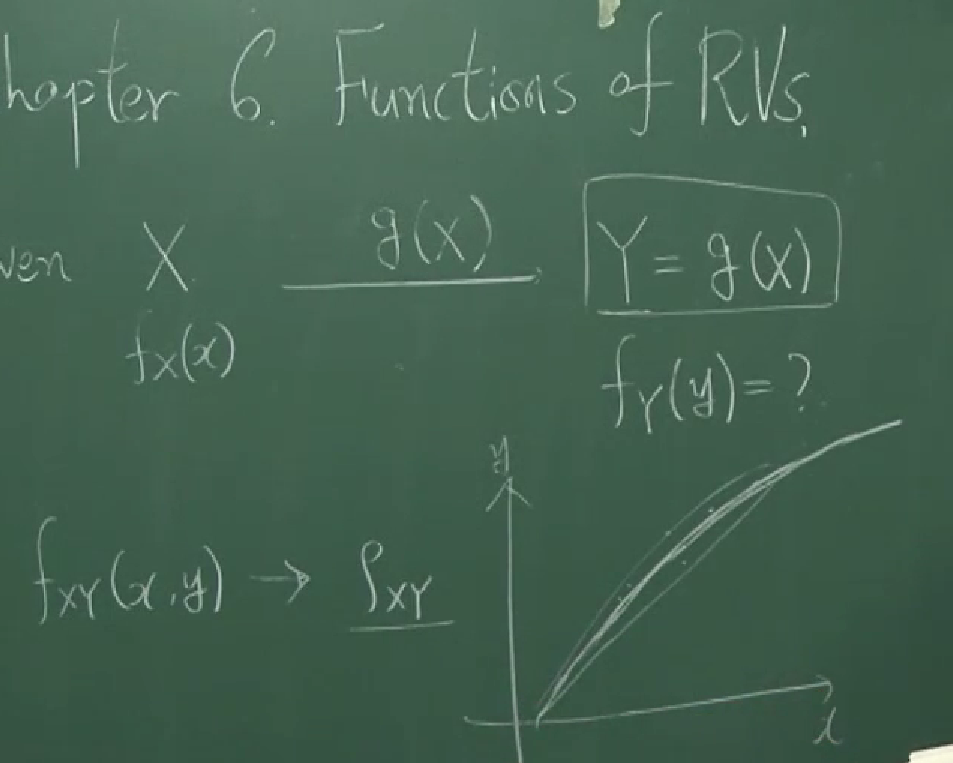 hapter 6. Functions of RVs,
ven X g(x) Y = g(x)
fX(x) fY(y) = ?
y
fXY(x,y) → ρXY
x